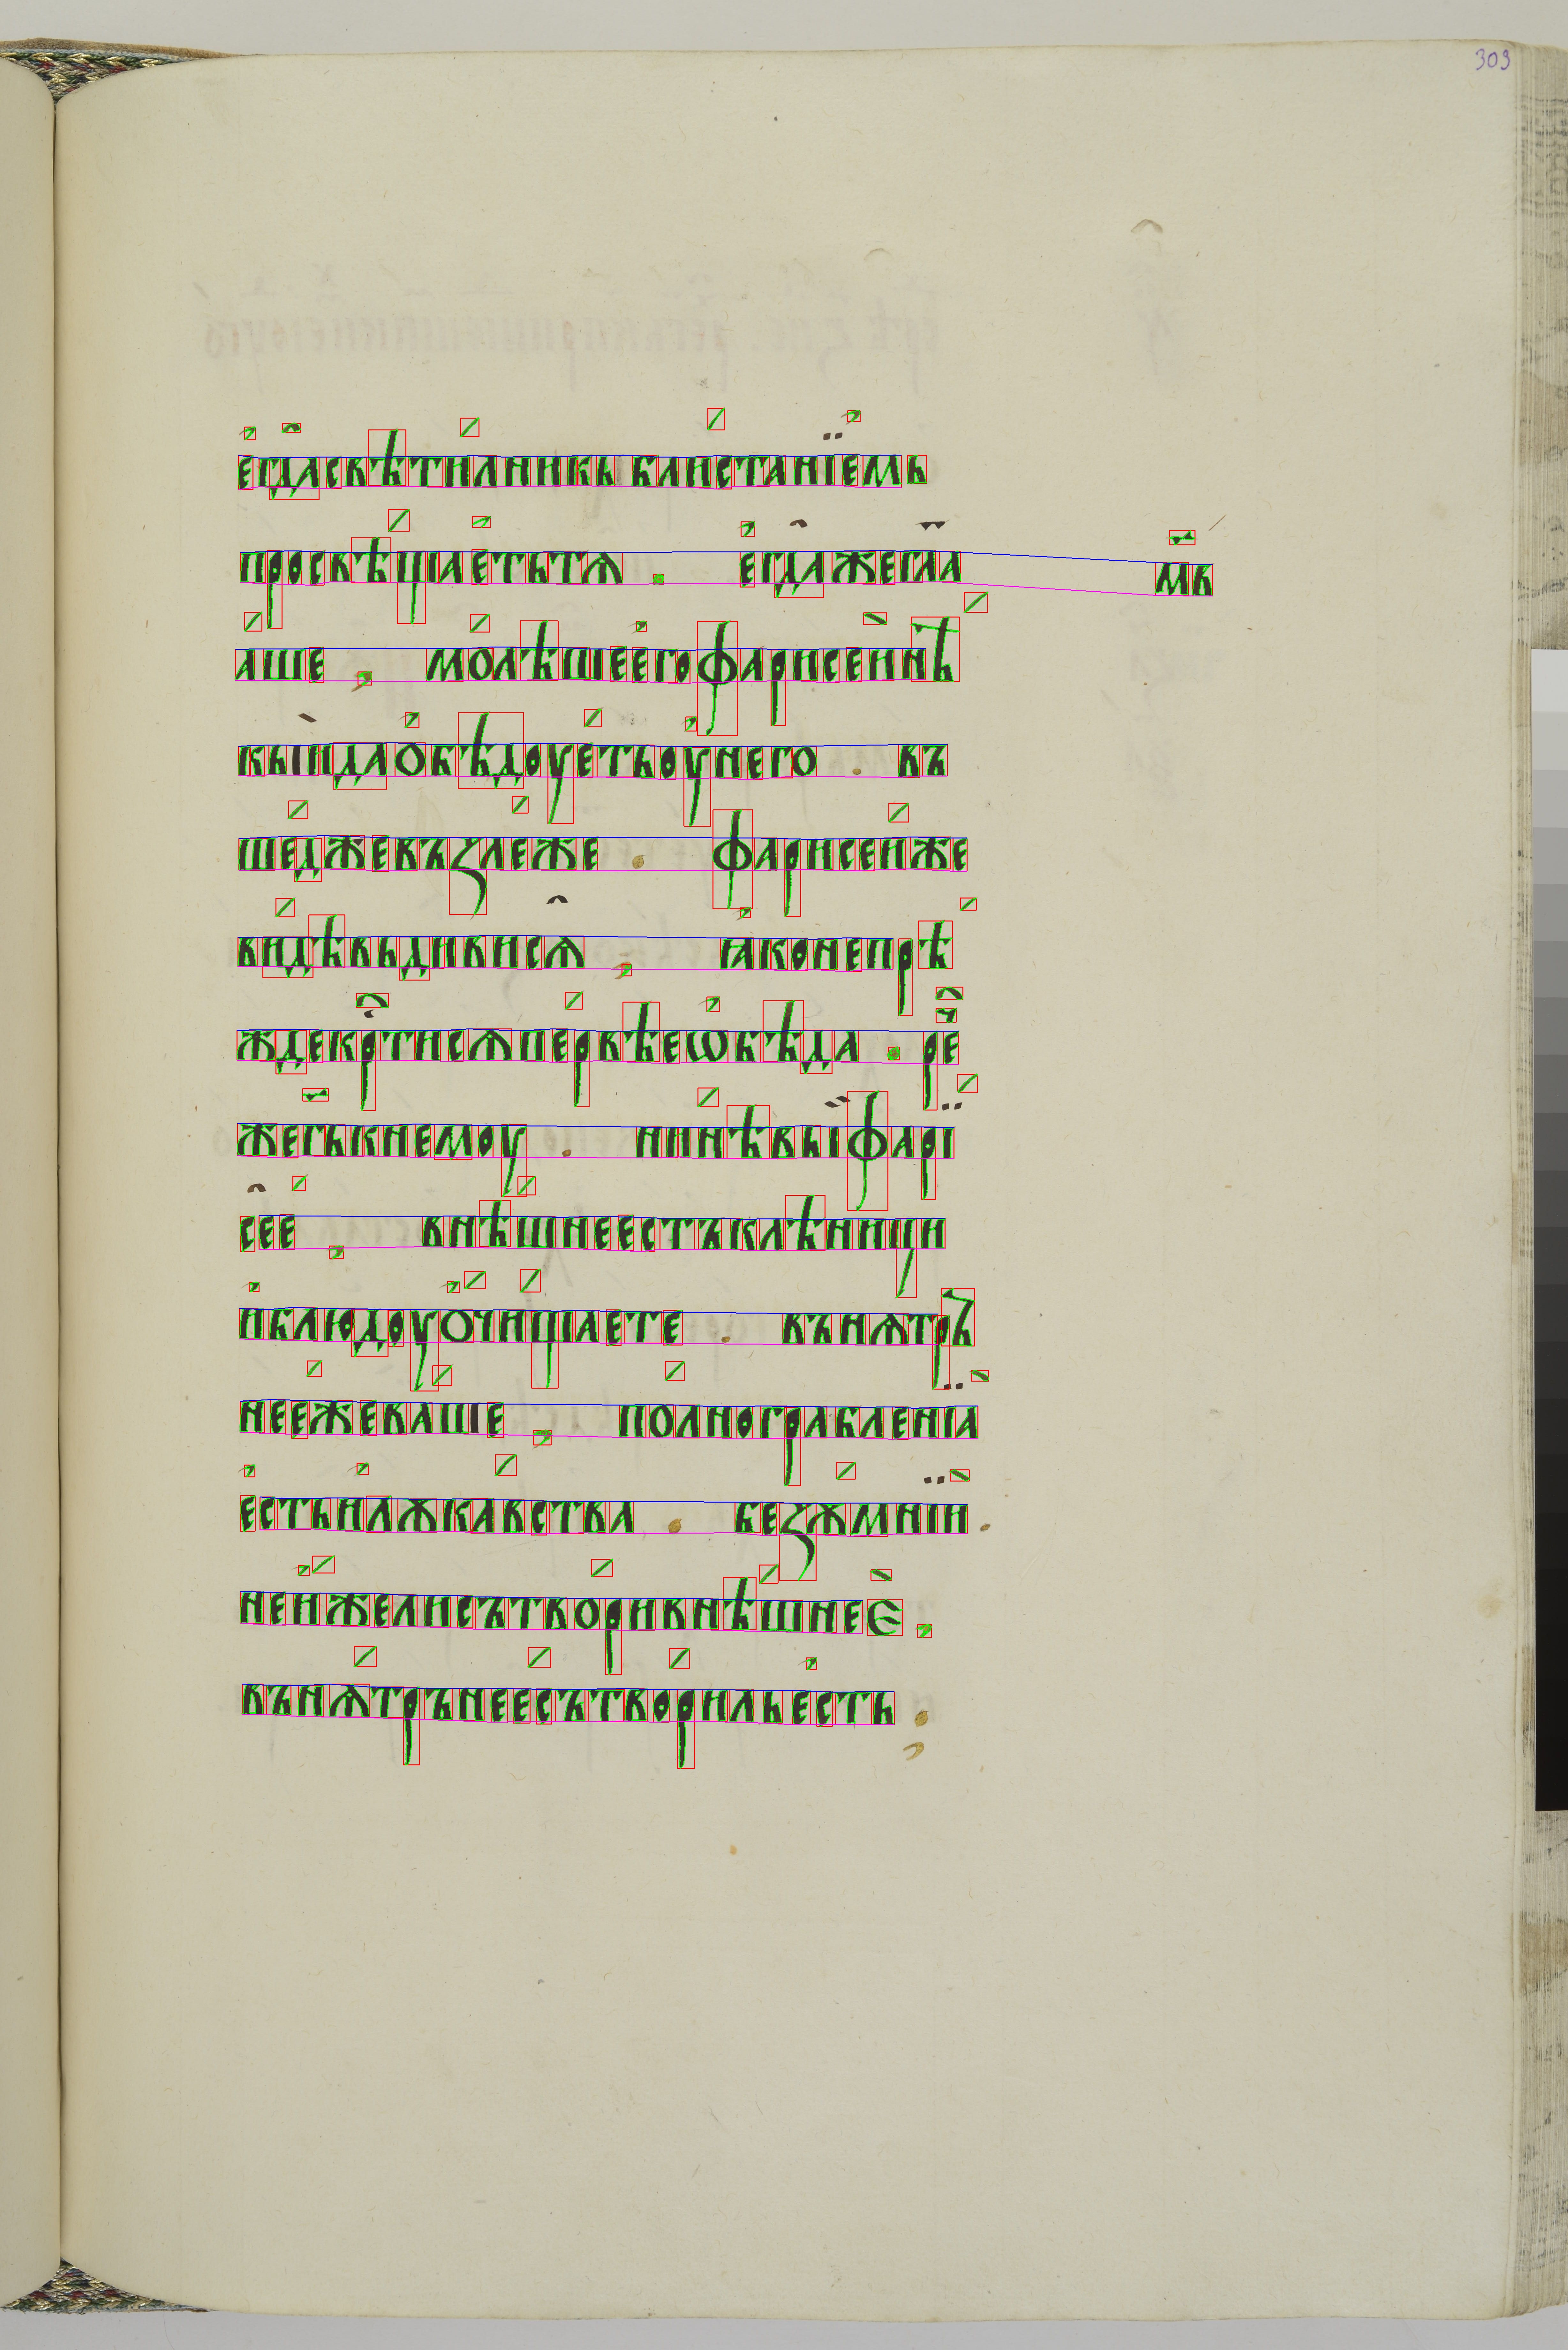 303
егдасвѣтилникьблистанїемь
просвѣщаетьтѧ . егдажегл҃а мв
аше , молѣшеегофарисеинѣ
кыидаобѣдоуетьоунего . въ
шеджевъꙁлеже . фарисеиже
видѣвьдивисѧ , ꙗконепрѣ
ждекр҇тисѧпервѣеѡбѣда . ре҇
жегькнемоу . нинѣвыфарї
сее , внѣшнеестъклѣници
иблюдоуочищаете . вънѫтръ
неежеваше , полнограбленїа
естьилѫкавства . беꙁѫмнїи .
неижелисътворивнѣшнее ,
вънѫтрънеесътворильесть ;